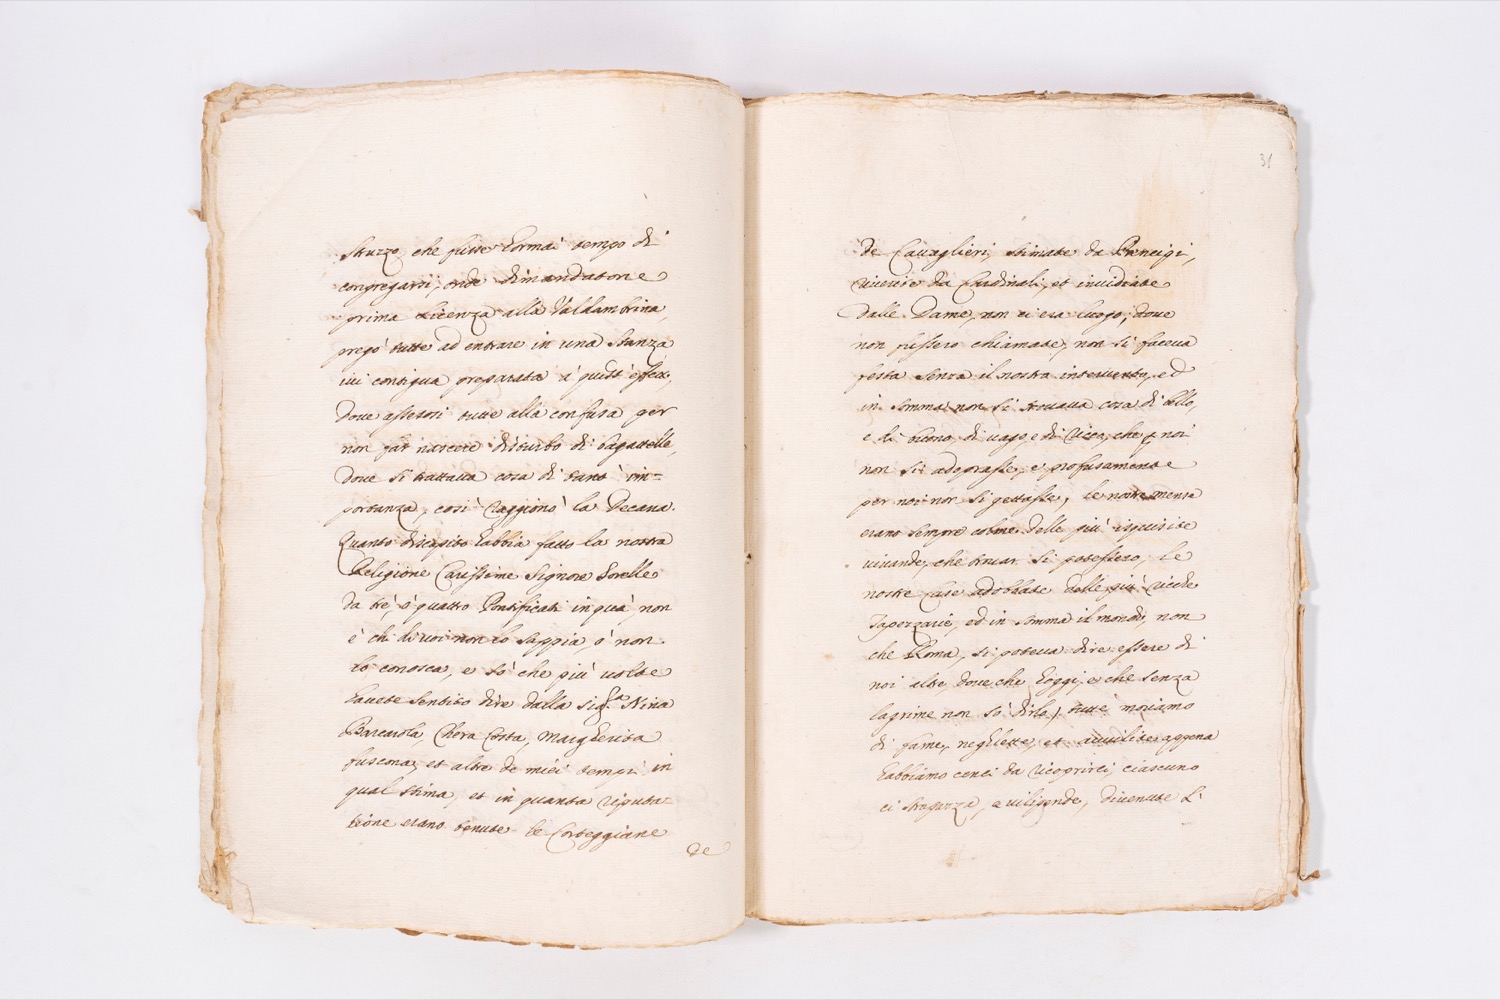 Struzzo, che fusse hormai tempo di
congregarsi, onde dimandatone
prima licenza alla Valdambrina,
pregò tutte ad entrare in una stanza
ivi contigua preparata à quest'effetto,
dove assetosi tutte alla confusa per
non far nascere disturbo di bagattelle,
dove si trattava cosa di tant' im=
portanza, così raggionò la Decana.
Quanto discapito habbia fatto la nostra
Religione Carissime Signore Sorelle
da trè, ò quattro Pontificati in quà, non
è chi di voi non lo sappia, ò non
lo conosca, e sò che più volte
havete sentito dire dalla Sig.ra Nina
Barcarola, Checa Costa, Margherita
fuscona, et altre de miei tempi in
qual stima, et in quanta reputa=
tione erano tenute le Corteggiane
de
31
de Cavaglieri, stimate da Prencipi,
riverite da Cardinali, et invidiate
dalle Dame, non vi era luogo, dove
non fussero chiamate, non si faceva
festa senza il nostro intervento, ed
in somma non si trovava cosa di bello,
e di buono, di vago, e di ricco, che p noi
non si adoprasse, e profusamente
per noi non si gettasse, le nostre mense
erano sempre colme delle più isquisite
vivande, che trovar si potessero, le
nostre case adobbate delle più ricche
Taperzarie, ed in somma il mondo, non
che Roma, si poteva dire essere di
noi altre, dove che hoggi, e che senza
lagrime non sò dirlo, tutte moriamo
di fame, neglette, et avvilite appena
habbiamo cenci da ricoprirci, ciascuno
ci strapazza, e vilipende, divenute li